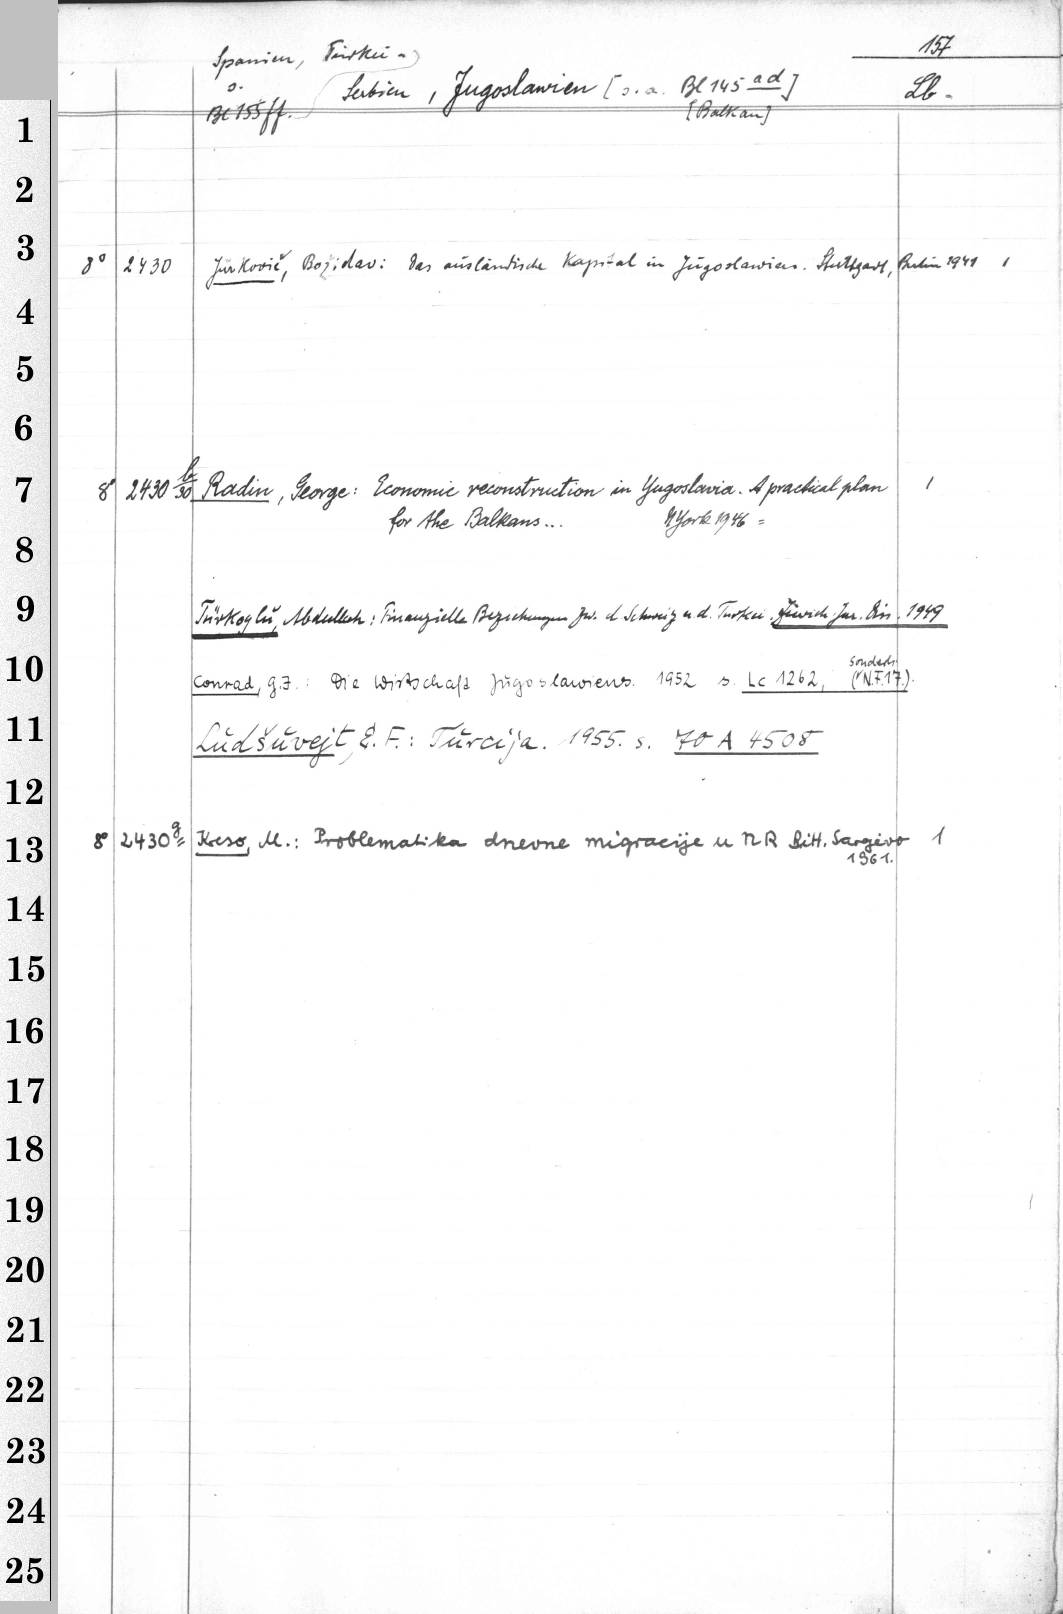 157
Spanien, Türkei -
s.
Bl 155 ff.
Serbien, Jugoslawien [s. a. Bl 145 ad]
[Balkan]
Lb -
1
2
3
8° 2430 Jurković, Božidav: Das ausländische Kapital in Jugoslawien. Stuttgart, Berlin 1941 1
4
5
6
7
8° 2430 b/30 Radin, George: Economic reconstruction in Yugoslavia. A practical plan 1
for the Balkans... N York 1946 =
8
9
Türkoglu, Abdullah: Finanzielle Beziehungen zw. d Schweiz u. d. Türkei. Zürich. Jur. Diss. 1949
10
sonderh.
Conrad, G. J.: Die Wirtschaft Jugoslawiens. 1952 s. Lc 1262, (N.F.17.).
11
Ludšuvejt, E. F.: Turcija. 1955. s. 70 A 4508
12
13
8° 2430 g= Kreso, M.: Problematika dnevne migracije u NR BiH. Sarajevo 1
1961.
14
15
16
17
18
19
20
21
22
23
24
25